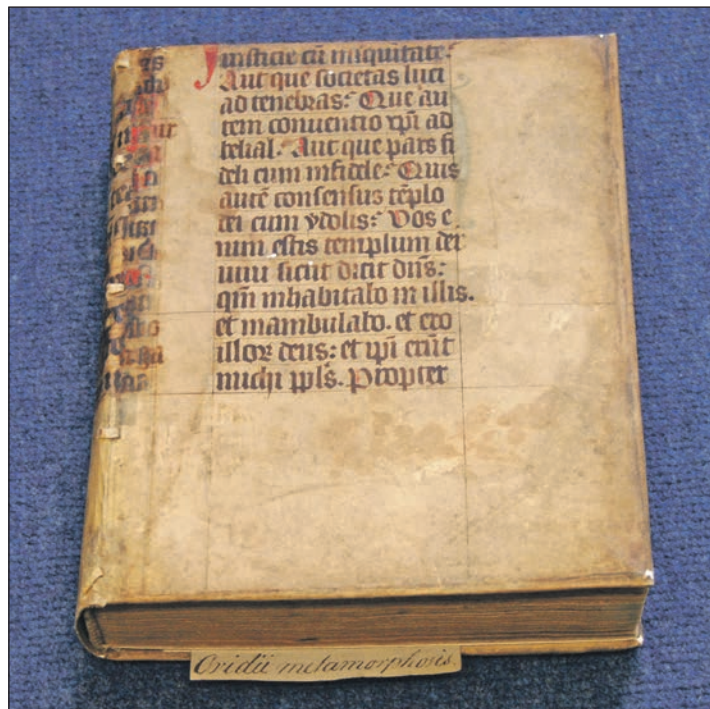 Iusticie cū iniquitate?
Aut que societas luci
ad tenebras? Que au
tem conuentio xp̄i ad
belial? Aut que pars fi
deli cum infidele? Quis
autē consensus tēplo
dei cum ydolis? Vos e
nim estis templum dei
uiui sicut dicit dn̄s:
qm̄ inhabitabo in illis.
et inambulabo. et ero
illoꝝ deus: et ip̄i erūt
michi ppl̄s. Propter
Ovidii metamorphosis.